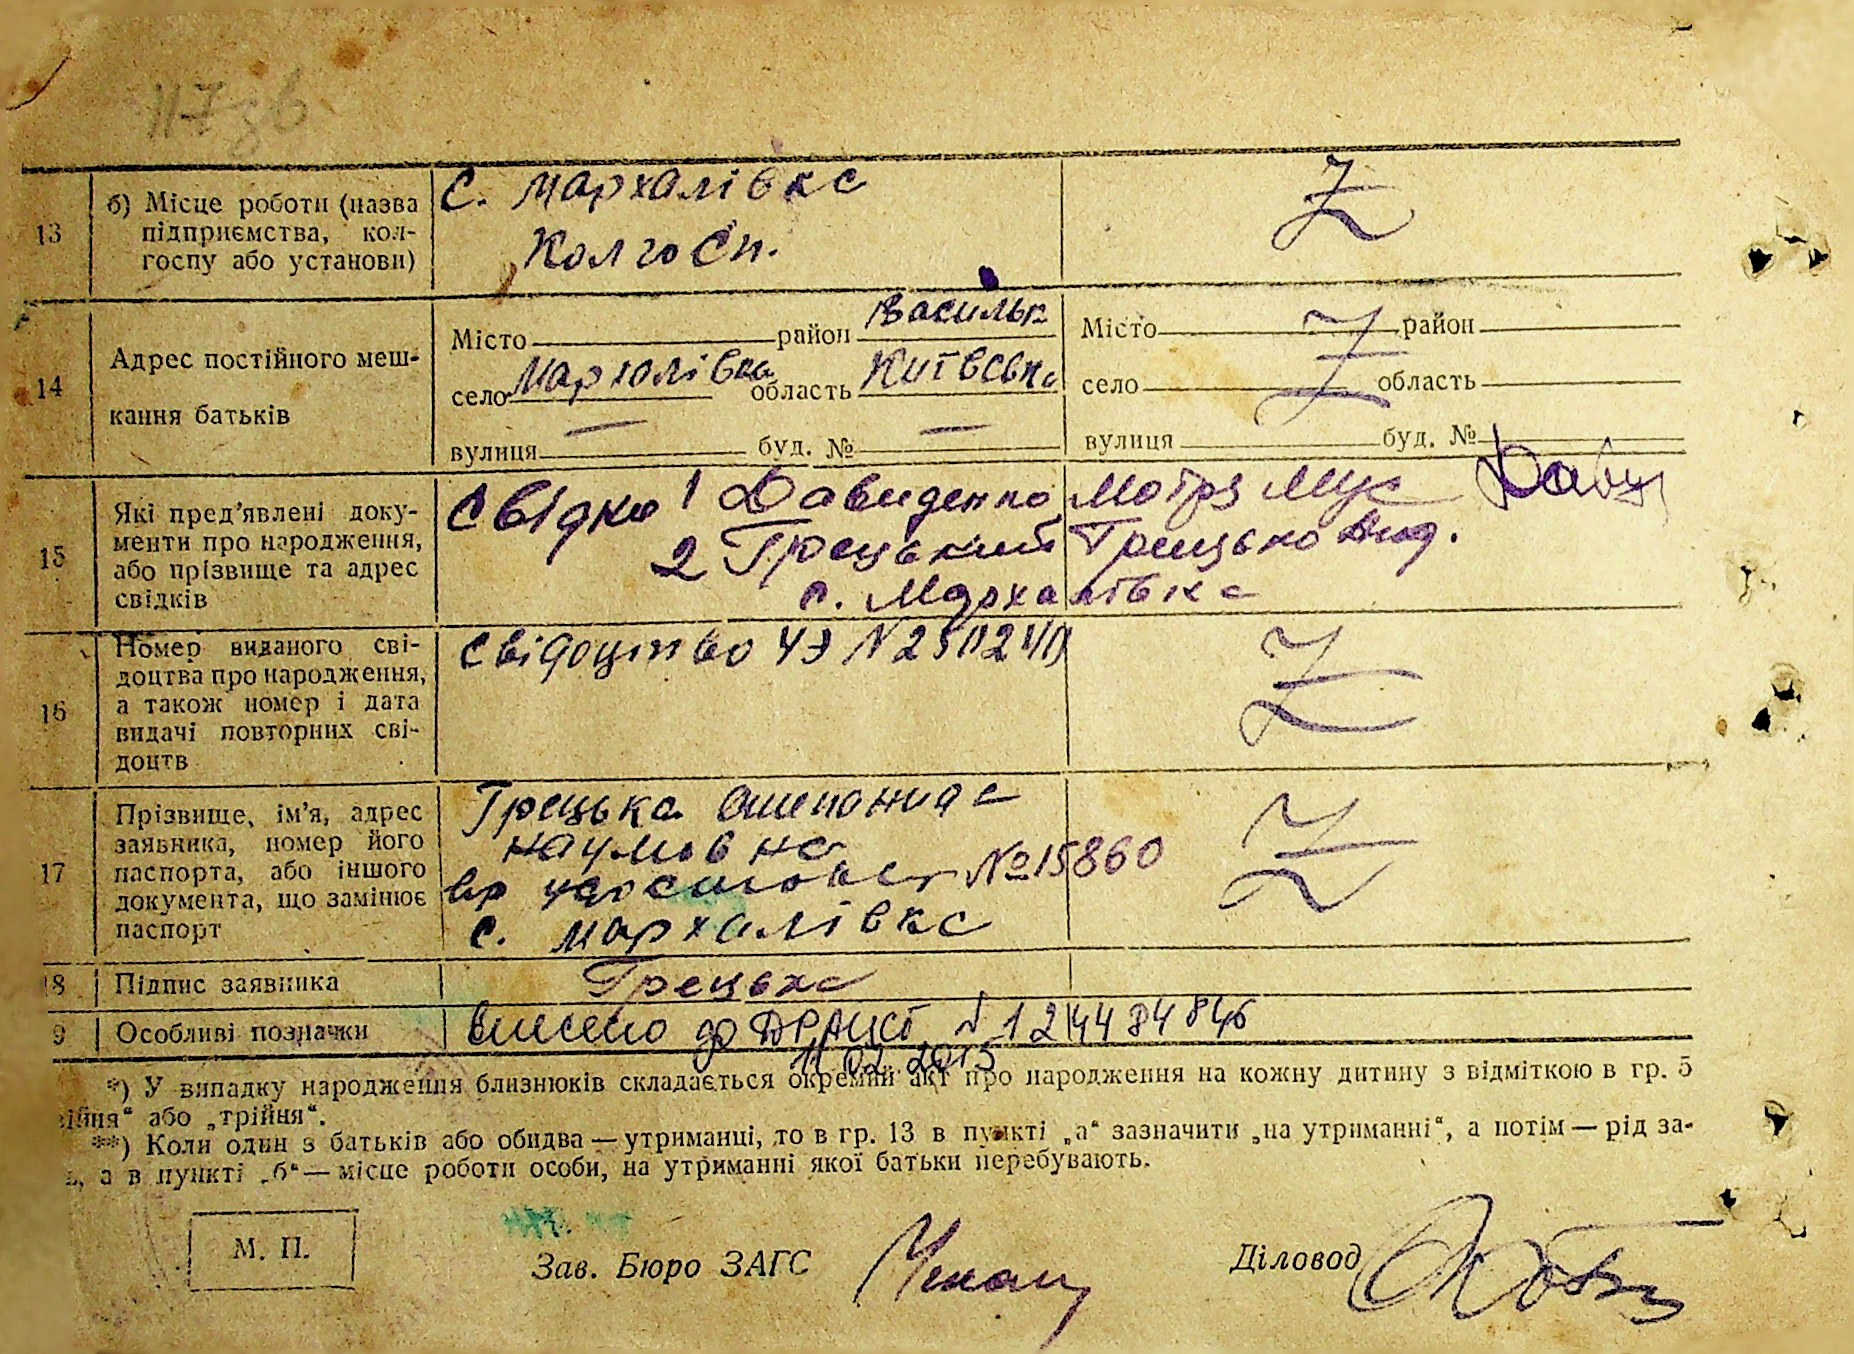 117 зв
13
б) Місце роботи (назва підприємства, колгоспу або установи)
с. Мархалівка
Колгосп.
Z
14
Адрес постійного мешкання батьків
Місто район Васильк
село Мархалівка область Київська
вулиця — буд. № —
Місто район
село область
вулиця буд. №
Z
15
Які пред'явлені документи про народження, або прізвище та адрес свідків
Свідки 1 Давиденко Мотря Мус
2 Грецький Грицько
с. Мархалівка
16
Номер виданого свідоцтва про народження, а також номер і дата видачі повторних свідоцтв
Свідоцтво ЧЭ N
Z
17
Прізвище, ім'я, адрес заявника, номер його паспорта, або іншого документа, що замінює паспорт
Грецька
Наумовна
№15860
с. Мархалівка
Z
18
Підпис заявника
Грецька
9
Особливі позначки
внесено до ДРАЦСГ N 124484846
11.02.2015
*) У випадку народження близнюків складається окремий акт про народження на кожну дитину з відміткою в гр. 5
ійня“ або „трійня“.
**) Коли один з батьків або обидва — утриманці, то в гр. 13 в пункті „а“ зазначити „на утриманні“, а потім — рід за-
, а в пункті „б“ — місце роботи особи, на утриманні якої батьки перебувають.
М. П.
Зав. Бюро ЗАГС
Діловод